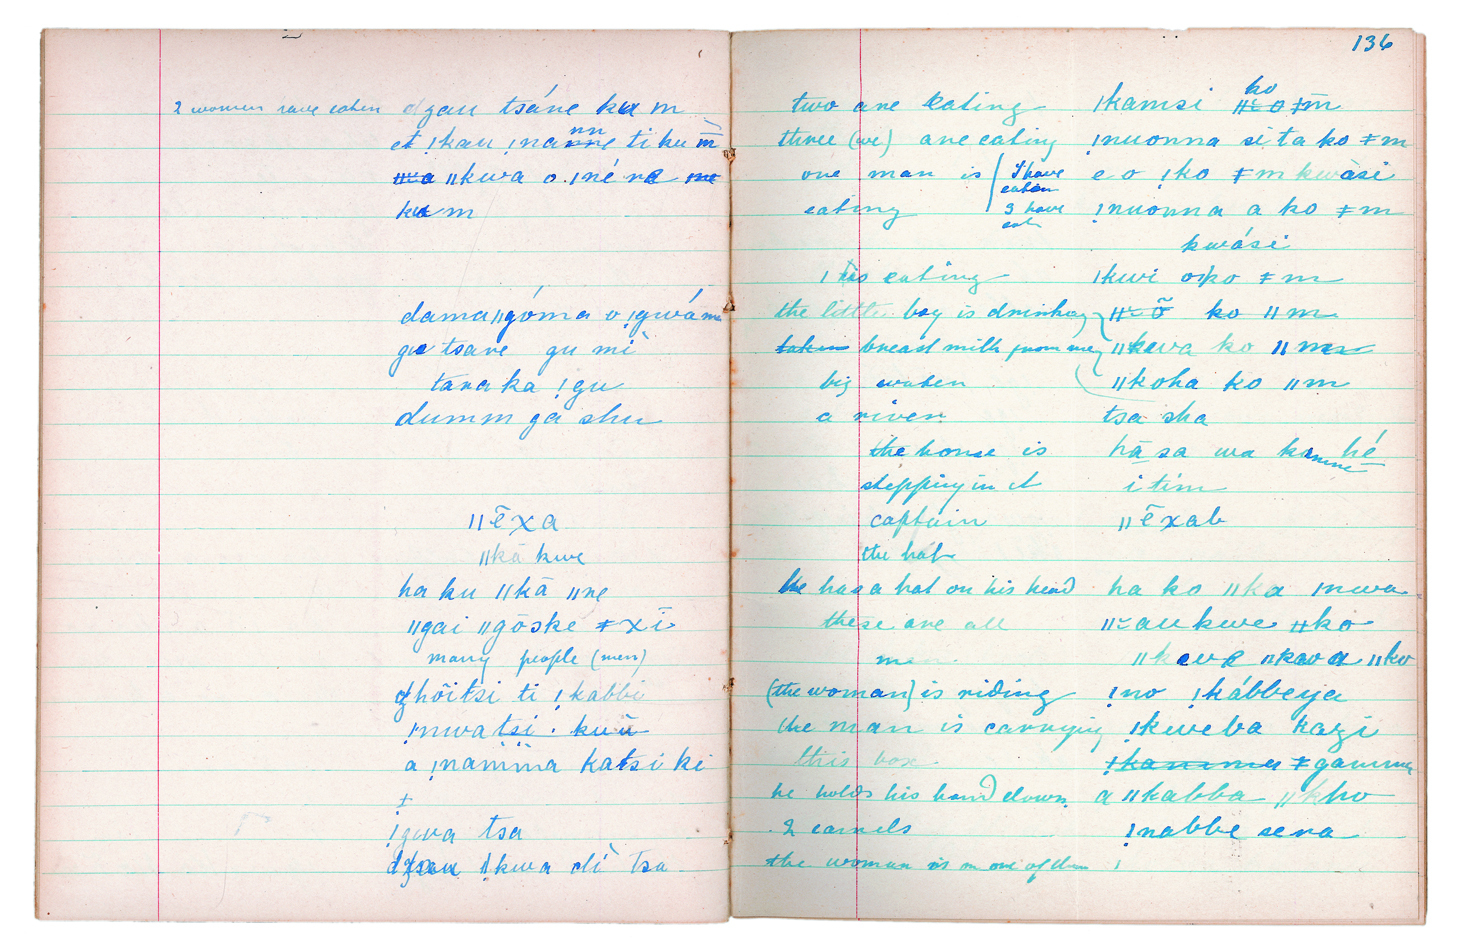 2 women have eaten dzau tsáne ku m
et !kau !na nn ti ku m̄
ǁkwa o !né na
ku m
dama ǁgóma o !gwá m
ge tsave gu mì
tana ka !gu
dumm ga shu
ǁēxa
ǁkā kwe
ha ku ǁkā ǁne
ǁgai ǁgōske ǂxī
many people (men)
ghōitsi ti !kabbi
!nwa tsi kuū
a !namma katsi ki
ǂ
!gwa tsa
ǀkwa di tsa
136
two are eating ǀkamsi ko ǂm̄
three (we) are eating !nuonna si ta ko ǂm
one man is I have eaten e o !ko ǂm kwàsi
eating I have eat !nuonna a ko ǂm
kwási
1 is eating ǀkwi o ko ǂm
the little boy is drinking ǁ õ ko ǁm
taken breast milk from me ǁkwa ko ǁm
big water ǁkoha ko ǁm
a river tsa sha
the horse is hā sa wa kamme hé
stepping in it i tim
captain ǁēxab
the hat
he has a hat on his head ha ko ǁka ǀnwa
these are all ǁau kwe ǂko
men ǁkwe ǁkwa ǁko
(the woman) is riding !no !kábbeya
the man is carrying !kweba kazi
this box !kamma ǂgamma
he holds his hand down a ǁkabba ǁkho
2 camels !nabbe sera
the woman is on one of them !